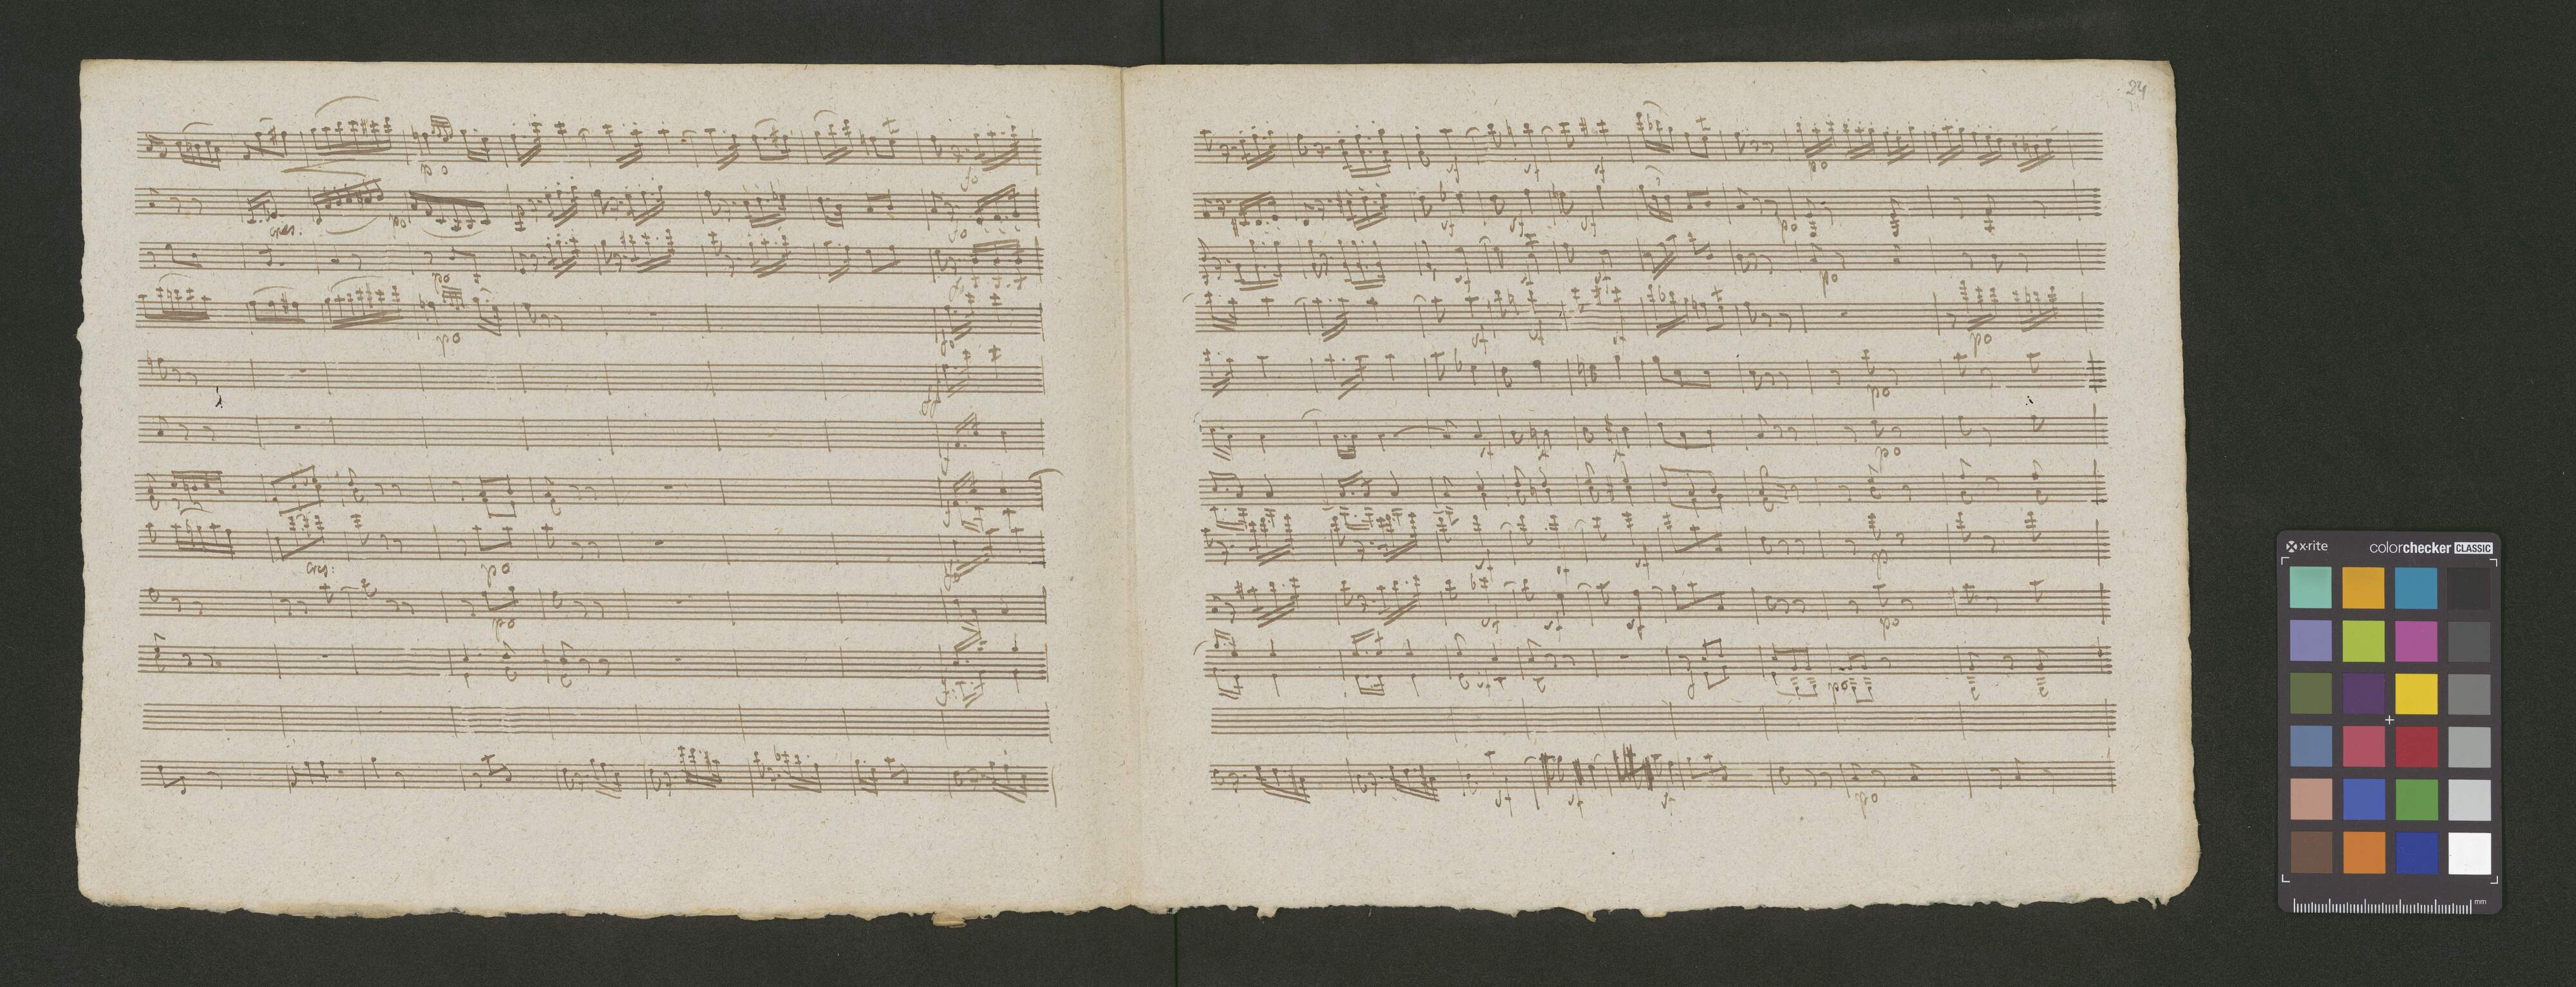 24
po
fo
cres:
po
fo
po
po
ff
cres:
po
po
sf
sf
sf
po
sf
sf
sf
po
sf
sf
sf
po
sf
sf
sf
po
po
sf
sf
po
sf
sf
sf
sf
sf
po
po
sf
sf
sf
po
x-rite
colorchecker CLASSIC
mm